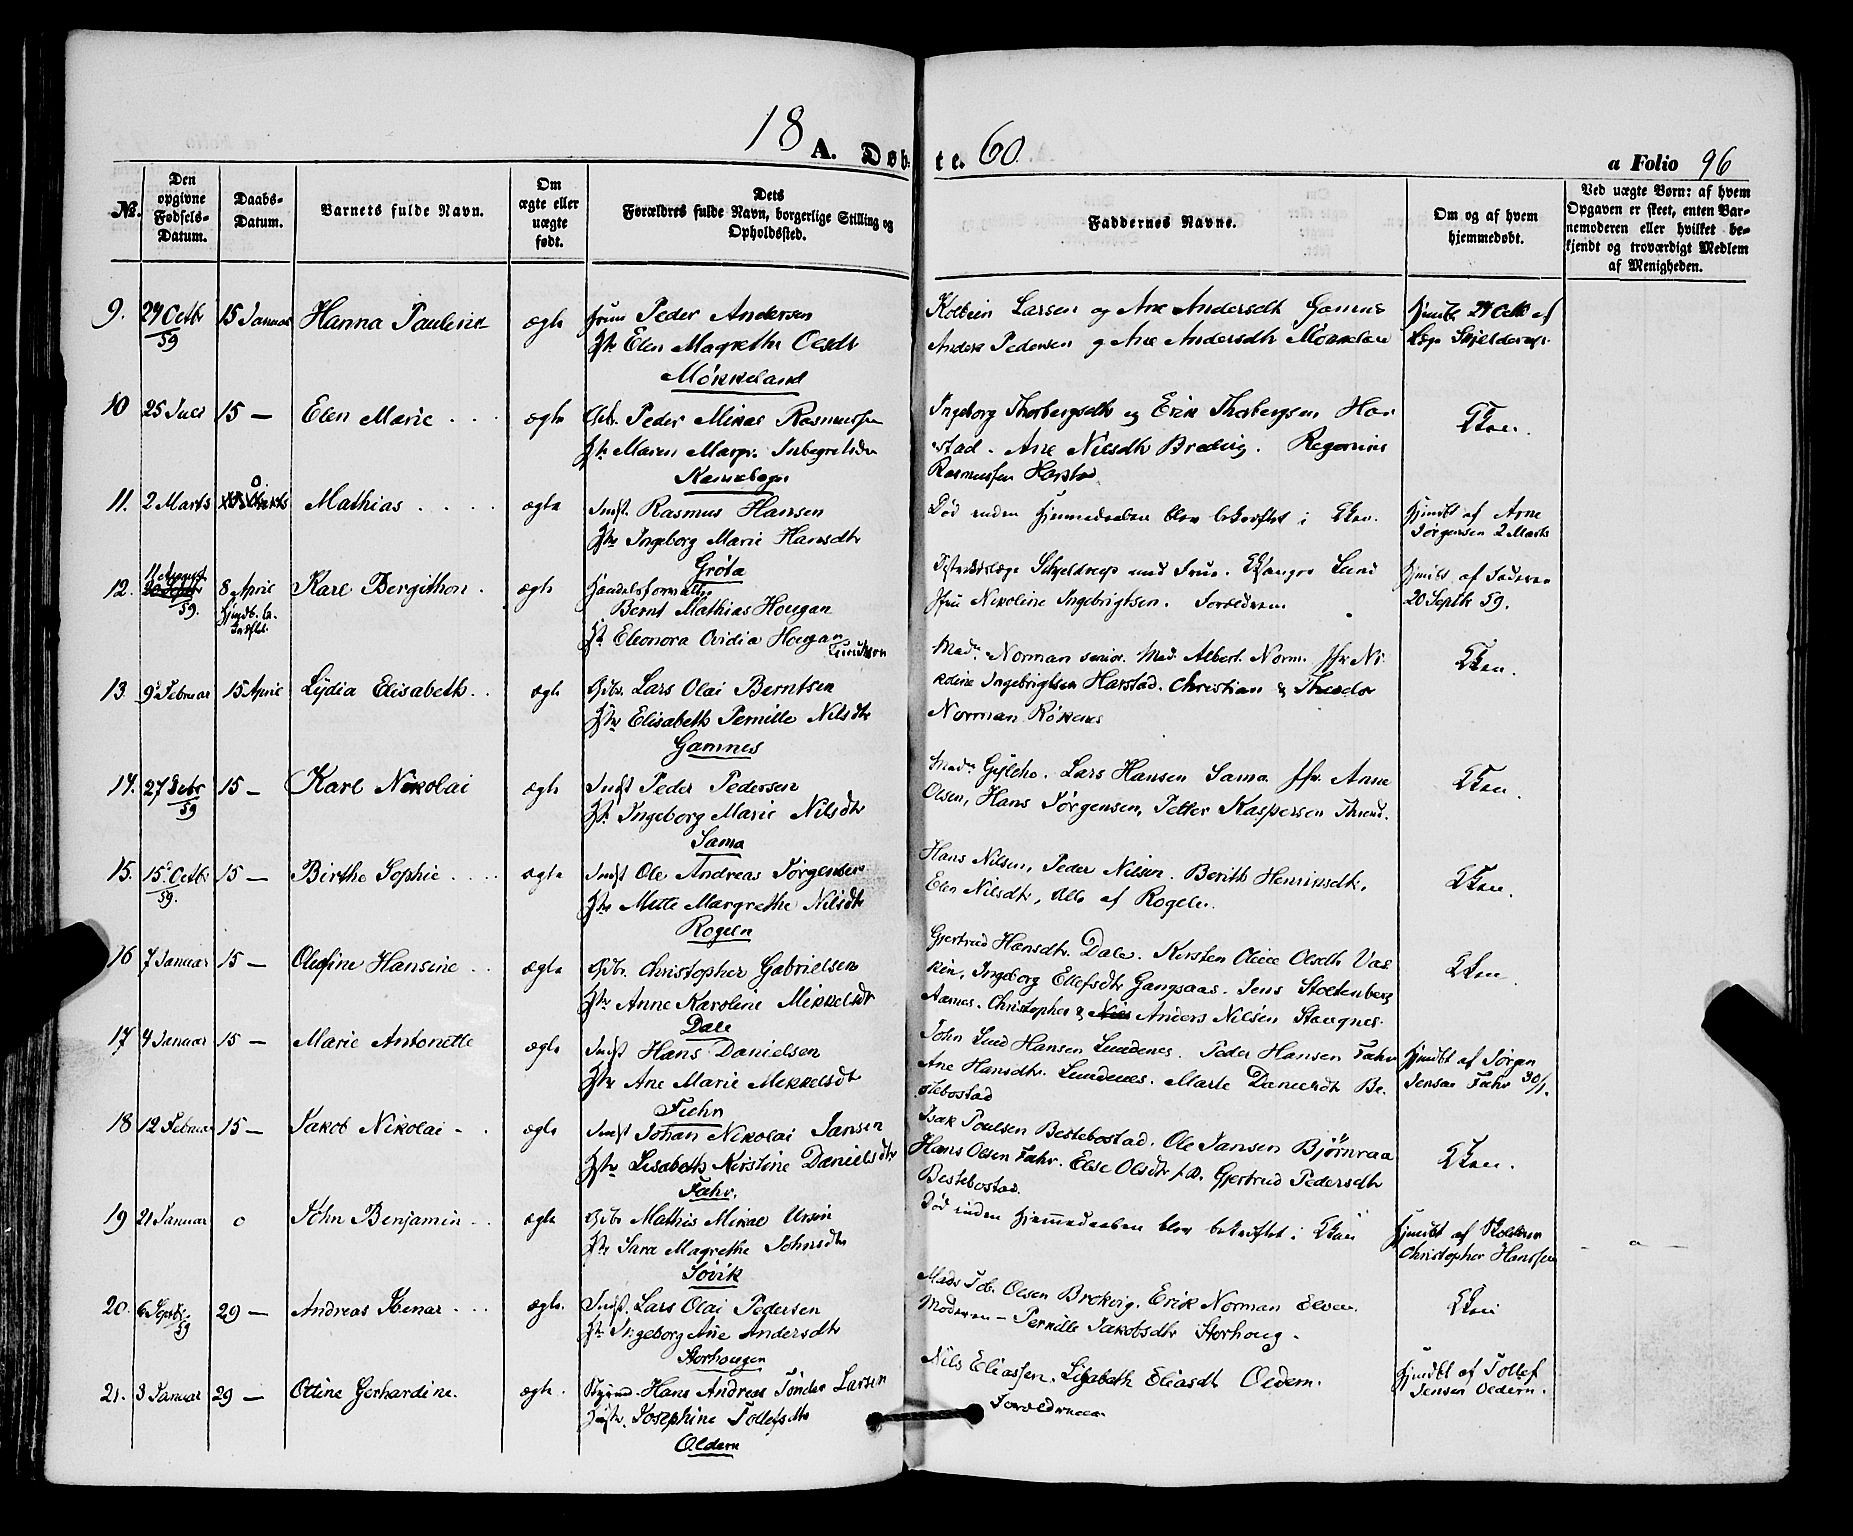 18 A. Døbte. 60.
a Folio 96
No.
Den opgivne Fødsels-Datum.
Daabs-Datum.
Barnets fulde Navn.
Om ægte eller uægte født.
Dets Forældres fulde Navn, borgerlige Stilling og Opholdssted.
Faddernes Navne.
Om og af hvem hjemmedøbt.
Ved uægte Børn: af hvem Opgaven er skeet, enten Barnemoderen eller hvilket bekjendt og troværdigt Medlem af Menigheden.
9. 24 Octbr 59 15 Januar Hanna Paulerine ægte Peder Andersen
Elen Magrethe Olsdtr
Møkkeland
Kolbein Larsen og Ane Andersdtr Gamnes
Anders Pedersen og Ane Andersdtr Møkkeland
10 25 Juli 15 — Elen Marie ægte Peder Mikal Rasmussen
Maren Margr.
Ingeborg Thorbergsdtr og Erik Thorbergsen Har-
stad. Ane Nilsdtr Brekvig.
Rasmussen Harstad
11. 2 Marts o Mathias ægte Indst. Rasmus Hansen
Hstr Ingeborg Marie Hansdtr
Grøta
Død inden Hjemmedaaben blev bekræftet i Kken.
Hjmdbt af Arne
Jørgensen 2 Marts
12. 11 August 59. 8 April Karl Bergithon ægte
Bernt Mathias Hougan
Eleonora Ovidia Hougan
Jfru Nikoline Ingebrigtsen. Forældrene
Hjmdbt af Faderen
20 Septb 59.
13 9 Februar 15 April Lydia Elisabeth ægte Gbr. Lars Olai Berntsen
Hstr Elisabeth Pernille Nilsdtr
Gamnes
Madm Norman senior. Mad. Albert. Norm. Jfr Ni-
koline Ingebrigtsen Harstad. Christian & Theodor
Norman Røkenes
Kken.
14. 27 59 15 — Karl Nikolai ægte Indst Peder Pedersen
Hstr Ingeborg Marie Nilsdtr
Sama
Lars Hansen Sama Jfr. Anne
Olsen, Hans Jørgensen, Petter Kaspersen
Kken.
15. 15 Octbr 59. 15 — Birthe Sophie ægte Indst Ole Andreas Jørgensen
Hstr Mette Margrethe Nilsdtr
Rogeln
Hans Nilsen, Peder Nilsen. Berith Henriksdtr,
Elen Nilsdtr, Alle af Rogeln.
Kken.
16 7 Januar 15 — Olefine Hansine ægte Gbr. Christopher Gabrielsen
Hstr Anne Karoline Mikkelsdtr
Dale
Gjertrud Hansdtr Dale. Kirsten Olsdtr
Ingeborg Ellefsdtr Gangsaas. Jens Stoltenberg
Aarnes. Christopher & Anders Nilsen Stangnes.
Kken
17 4 Januar 15 — Marie Antonette ægte Indst Hans Danielsen
Hstr Ane Marie Mikkelsdtr
John Lind Hansen Lundenes. Peder Hansen Fahr
Ane Hansdtr. Lundenes. Marte Danielsdtr Be-
stebostad
Hjmdbt af Jørgen
Jensen Fahr 30/1.
18 12 Februar 15 — Jakob Nikolai ægte Indst Johan Nikolai Jansen
Hstr Lisabeth Kirstine Danielsdtr
Fahr.
Isak Poulsen Bestebostad. Ole Jansen Bjørnraa
Hans Olsen Fahr. Else Olsdtr Gjertrud Pedersdtr
Bestebostad.
Kken.
19 21 Januar o John Benjamin ægte Gbr Mathis Mikal Ursin
Hstr Sara Magrethe Johnsdtr
Sørvik
Død inden Hjemmedaaben blev bekræftet i Kken
Hjmdbt af Skolelærer
Christopher Hanssen
— o —
20. 6 Septbr 59 29 — Andreas Ibenar ægte. Indst. Lars Olai Pedersen
Hstr Ingeborg Ane Andersdtr
Storhougen
Mads Tob. Olsen Brekvig. Erik Norman Elven.
Moderen — Pernille Jakobsdtr Storhoug.
Kken
21. 3 Januar 29 — Otine Gerhardine. ægte. Hans Andreas Tønder Larsen
Hustr. Josephine Tollefsdtr
Oldern
Nils Eliassen. Lisabeth Eliasdtr Oldern.
Forældrene
Hjmdbt af Tollef
Jensen Oldern.